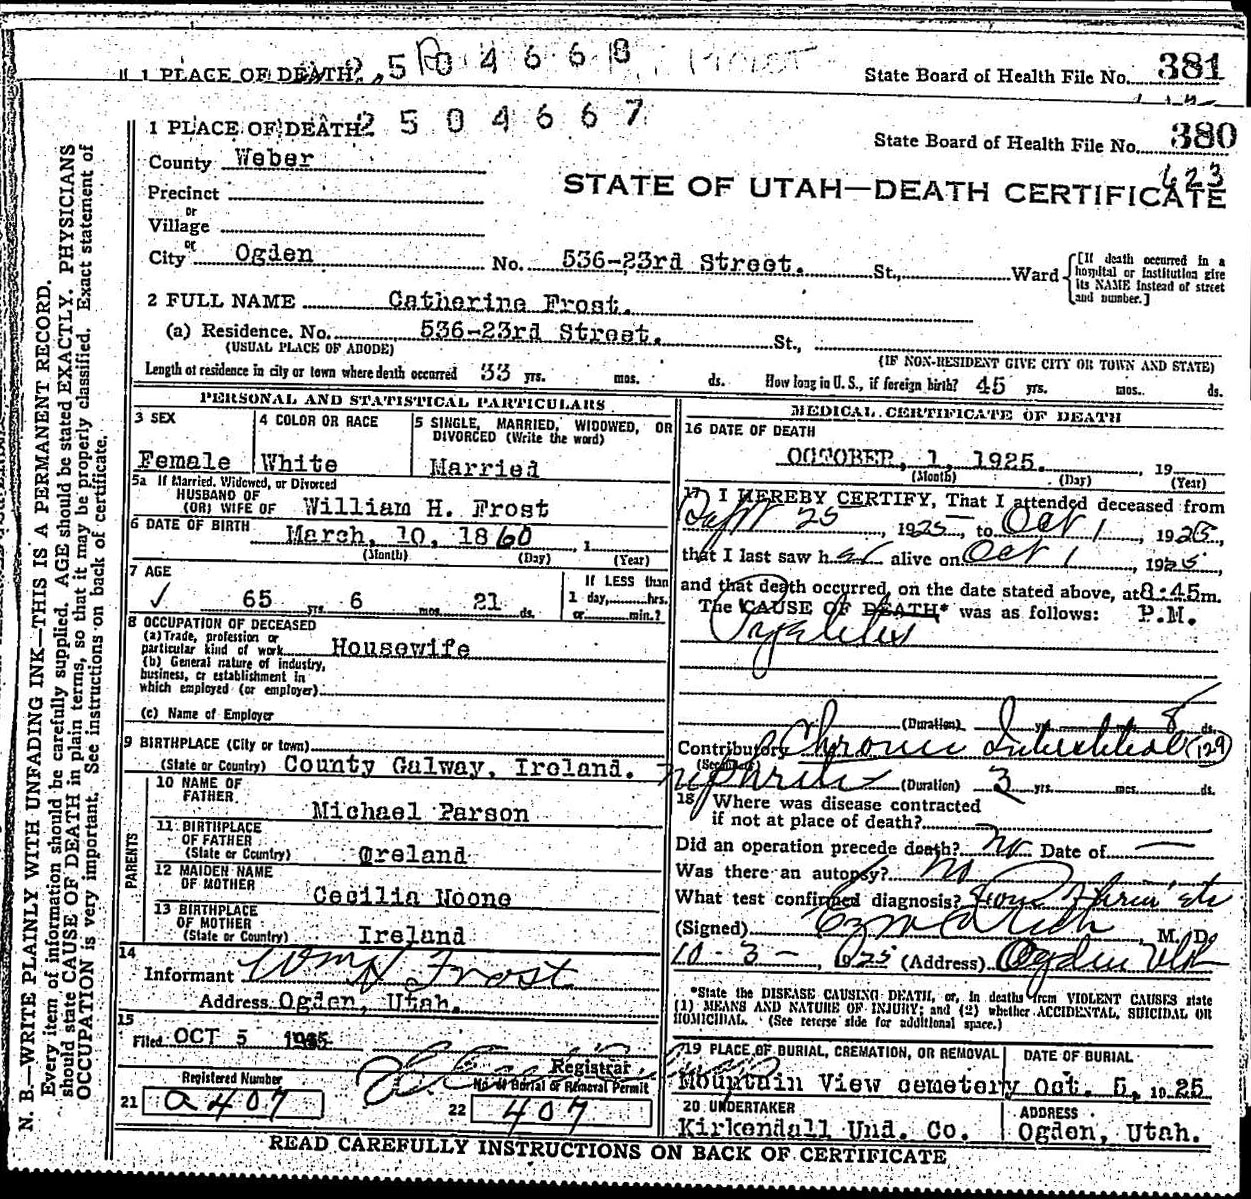 1 PLACE OF DEATH 2504668
State Board of Health File No. 381
1 PLACE OF DEATH 2504667
State Board of Health File No. 380
County Weber
623
STATE OF UTAH—DEATH CERTIFICATE
Precinct
or
Village
or
City Ogden No. 536-23rd Street. St., Ward
[If death occurred in a
hospital or institution give
its NAME instead of street
and number.]
2 FULL NAME Catherine Frost.
(a) Residence. No. 536-23rd Street. St.,
(USUAL PLACE OF ABODE)
(IF NON-RESIDENT GIVE CITY OR TOWN AND STATE)
Length of residence in city or town where death occurred 33 yrs. mos. ds. How long in U. S., if foreign birth? 45 yrs. mos. ds.
PERSONAL AND STATISTICAL PARTICULARS
3 SEX
Female
4 COLOR OR RACE
White
5 SINGLE, MARRIED, WIDOWED, OR
DIVORCED (Write the word)
Married
5a If Married, Widowed, or Divorced
HUSBAND OF
(OR) WIFE OF William H. Frost
6 DATE OF BIRTH
March, 10, 1860, 1
(Month) (Day) (Year)
7 AGE
✓ 65 yrs. 6 mos. 21 ds.
If LESS than
1 day, hrs.
or min.?
8 OCCUPATION OF DECEASED
(a) Trade, profession or
particular kind of work Housewife
(b) General nature of industry,
business, or establishment in
which employed (or employer)
(c) Name of Employer
9 BIRTHPLACE (City or town)
(State or Country) County Galway, Ireland.
PARENTS
10 NAME OF
FATHER
Michael Parson
11 BIRTHPLACE
OF FATHER
(State or Country) Ireland
12 MAIDEN NAME
OF MOTHER
Cecilia Noone
13 BIRTHPLACE
OF MOTHER
(State or Country) Ireland
14
Informant Wm H Frost
Address Ogden, Utah.
15
Filed OCT 5 1925
Registrar
Registered Number
21 a 407
No. of Burial or Removal Permit
22 407
MEDICAL CERTIFICATE OF DEATH
16 DATE OF DEATH
OCTOBER, 1, 1925. , 19
(Month) (Day) (Year)
17 I HEREBY CERTIFY, That I attended deceased from
Sept 25, 1925 to Oct 1, 1925,
that I last saw her alive on Oct 1, 1925,
and that death occurred, on the date stated above, at 8:45m.
The CAUSE OF DEATH* was as follows: P.M.
Pyelitis
(Duration) yrs. mos. 8 ds.
Contributory Chronic Interstitial (129)
(Secondary)
nephritis (Duration) 3 yrs. mos. ds.
18 Where was disease contracted
if not at place of death?
Did an operation precede death? no Date of —
Was there an autopsy? no
What test confirmed diagnosis?
(Signed) M. D.
10-3-, 1925 (Address) Ogden Utah
*State the DISEASE CAUSING DEATH, or, in deaths from VIOLENT CAUSES state
(1) MEANS AND NATURE OF INJURY; and (2) whether ACCIDENTAL, SUICIDAL OR
HOMICIDAL. (See reverse side for additional space.)
19 PLACE OF BURIAL, CREMATION, OR REMOVAL
Mountain View cemetery
DATE OF BURIAL
Oct. 5, 1925
20 UNDERTAKER
Kirkendall Und. Co.
ADDRESS
Ogden, Utah.
READ CAREFULLY INSTRUCTIONS ON BACK OF CERTIFICATE
N. B.—WRITE PLAINLY WITH UNFADING INK—THIS IS A PERMANENT RECORD.
Every item of information should be carefully supplied. AGE should be stated EXACTLY. PHYSICIANS
should state CAUSE OF DEATH in plain terms, so that it may be properly classified. Exact statement of
OCCUPATION is very important. See instructions on back of certificate.